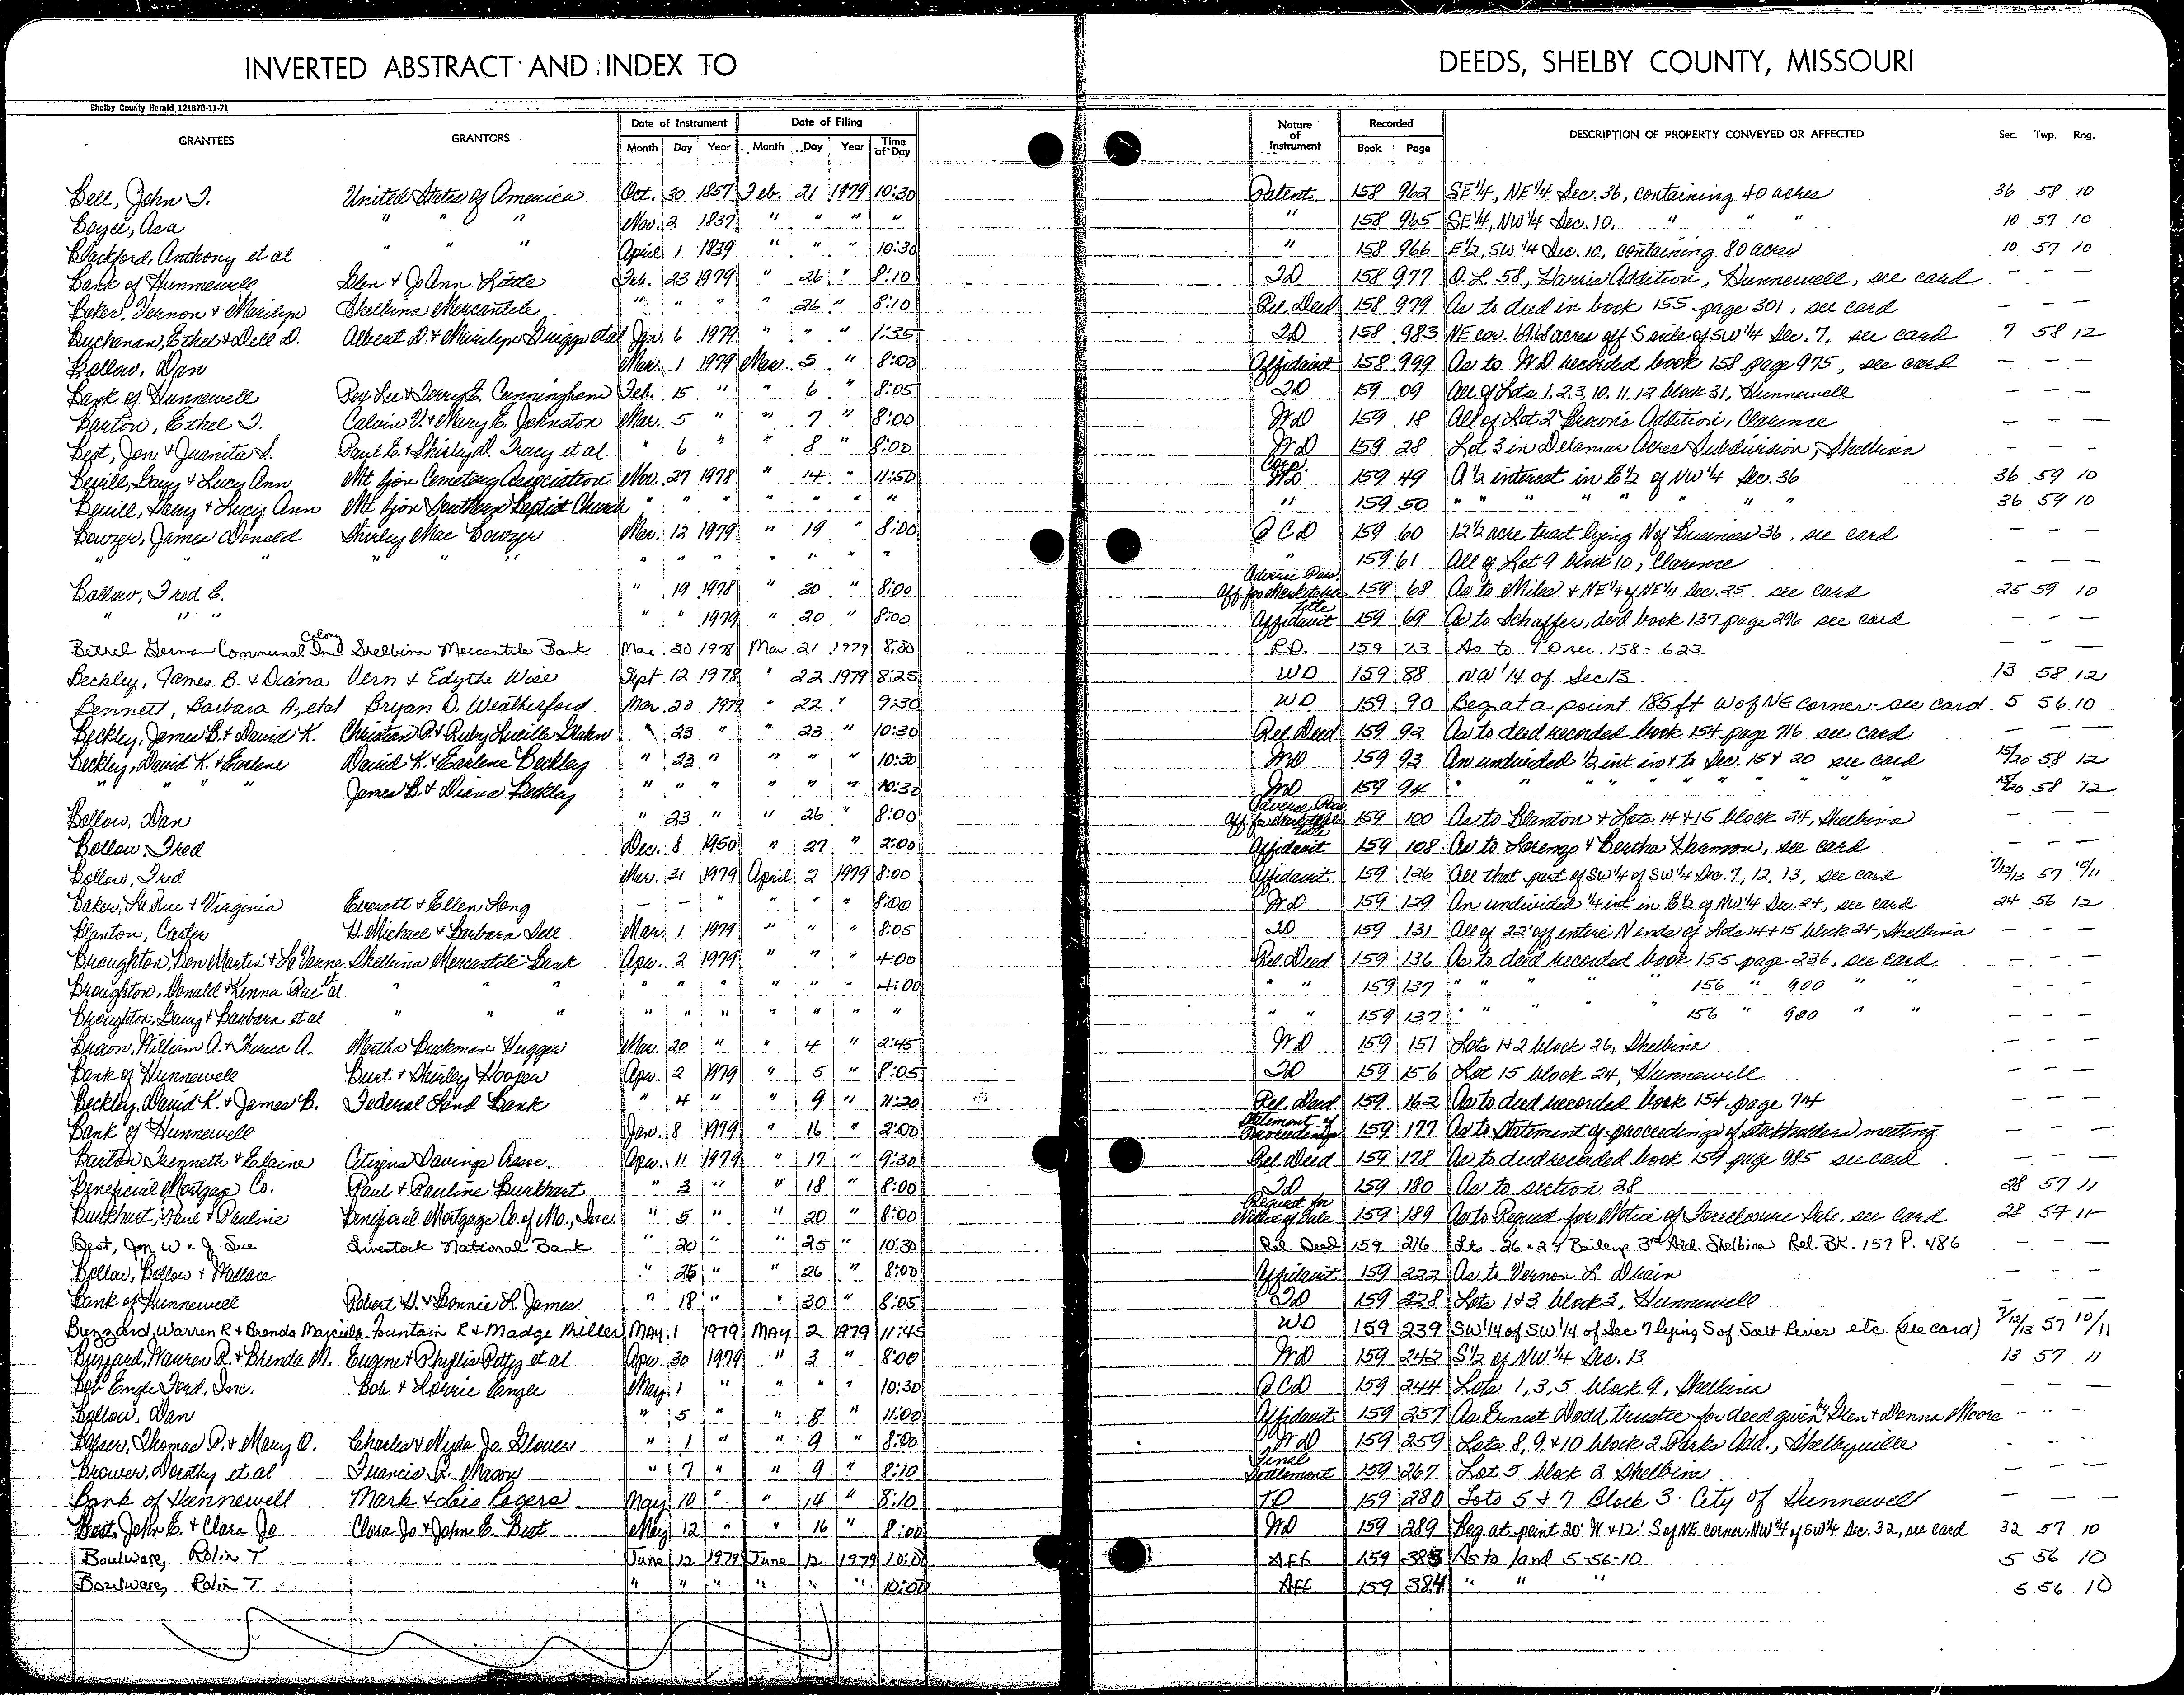 INVERTED ABSTRACT AND INDEX TO DEEDS, SHELBY COUNTY, MISSOURI
Shelby County Herald 121878-11-71
GRANTEES GRANTORS Date of Instrument Date of Filing Nature of Instrument Recorded DESCRIPTION OF PROPERTY CONVEYED OR AFFECTED Sec. Twp. Rng.
Month Day Year Month Day Year Time of Day Book Page
Bell, John T. United States of America Oct. 30 1857 Feb. 21 1979 10:30 Patent 158 962 SE 1/4, NE 1/4 Sec. 36, containing 40 acres 36 58 10
Boyce, Asa " " " Nov. 2 1837 " " " " " 158 965 SE 1/4, NW 1/4 Sec. 10. " " " 10 57 10
Blackford, Anthony et al " " " April 1 1839 " " " 10:30 " 158 966 E 1/2, SW 1/4 Sec. 10, containing 80 acres 10 57 10
Bank of Hunnewell Glen & JoAnn Little Feb. 23 1979 " 26 " 8:10 TD 158 977 O.L. 58, Harris Addition, Hunnewell, see card - - -
Baker, Vernon & Marilyn Shelbina Mercantile " " " " 26 " 8:10 Rel. Deed 158 979 As to deed in book 155 page 301, see card - - -
Buchanan, Ethel & Dell D. Albert D. & Marilyn et al Jan. 6 1979 " " " 1:35 TD 158 983 NE cor. 69.68 acres off S side of SW 1/4 Sec. 7, see card 7 58 12
Bollow, Dan Mar. 1 1979 Mar. 5 " 8:00 Affidavit 158 999 As to WD recorded book 158 page 975, see card - - -
Bank of Hunnewell Roy Lee & Terry E. Cunningham Feb. 15 " " 6 " 8:05 TD 159 09 All of Lots 1, 2, 3, 10, 11, 12 block 31, Hunnewell - - -
Barton, Ethel T. Calvin V. & Mary E. Johnston Mar. 5 " " 7 " 8:00 WD 159 18 All of Lot 2 Brown's Addition, Clarence - - -
Best, Jon & Juanita S. Paul E. & Shirley D. Tracy et al " 6 " " 8 " 8:00 WD 159 28 Lot 3 in Delamar Acres Subdivision, Shelbina - - -
Bevill, Gary & Lucy Ann Mt Zion Cemetery Association Nov. 27 1978 " 14 " 11:50 Corp. WD 159 49 A 1/2 interest in E 1/2 of NW 1/4 Sec. 36 36 59 10
Bevill, Gary & Lucy Ann Mt Zion Southern Baptist Church " " " " " " " " 159 50 " " " " " " " 36 59 10
Bowzer, James Donald Shirley Mae Bowzer Mar. 12 1979 " 19 " 8:00 QCD 159 60 12 1/2 acre tract lying N of Business 36, see card - - -
" " " " " " " " " " " " " " 159 61 All of Lot 9 block 10, Clarence - - -
Bollow, Fred C. " 19 1978 " 20 " 8:00 Adverse Poss. Aff for Marketable Title 159 68 As to Miles & NE 1/4 of NE 1/4 Sec. 25 see card 25 59 10
" " " " " 1979 " 20 " 8:00 Affidavit 159 69 As to Schaffer, deed book 137 page 296 see card - - -
Bethel German Communal Colony Ind Shelbina Mercantile Bank Mar 20 1978 Mar 21 1979 8:00 R.D. 159 73 As to TD rec. 158-623 - - -
Beckley, James B. & Diana Vern & Edythe Wise Sept 12 1978 " 22 1979 8:25 WD 159 88 NW 1/4 of Sec 13 13 58 12
Bennett, Barbara A, et al Bryan D. Weatherford Mar. 20 1979 " 22 " 9:30 WD 159 90 Beg at a point 185 ft W of NE corner - see card 5 56 10
Beckley, James B. & David K. Christian P. & Ruby Lucille " 23 " " 23 " 10:30 Rel. Deed 159 92 As to deed recorded book 154 page 716 see card - - -
Beckley, David K. & Earlene David K. & Earlene Beckley " 23 " " " " 10:30 WD 159 93 An undivided 1/2 int in & to Sec. 15 & 20 see card 15/20 58 12
" " " James B. & Diana Beckley " " " " " " 10:30 WD 159 94 " " " " " " " " " 15/20 58 12
Bollow, Dan " 23 " " 26 " 8:00 Adverse Poss Aff for Marketable Title 159 100 As to Blanton & Lots 14 & 15 block 24, Shelbina - - -
Bollow, Fred Dec. 8 1950 " 27 " 2:00 Affidavit 159 108 As to Lorenzo & Bertha Harmon, see card - - -
Bollow, Fred Mar. 31 1979 April 2 1979 8:00 Affidavit 159 126 All that part of SW 1/4 of SW 1/4 Sec. 7, 12, 13, see card 7/12/13 57 10/11
Baker, LaRue & Virginia Everett & Ellen Long - - " " " " 8:00 WD 159 129 An undivided 1/4 int in E 1/2 of NW 1/4 Sec. 24, see card 24 56 12
Blanton, Carter G. Michael & Barbara Mar. 1 1979 " " " 8:05 TD 159 131 All of 22' off entire N ends of Lots 14 & 15 block 24, Shelbina - - -
Broughton, Ben Martin & LaVerne Shelbina Mercantile Bank Apr. 2 1979 " " " 4:00 Rel. Deed 159 136 As to deed recorded book 155 page 236, see card - - -
Broughton, Donald & Kenna Rae et al " " " " " " " " " 4:00 " " 159 137 " " " " 156 " 900 " " - - -
Broughton, Gary & Barbara et al " " " " " " " " " " " " 159 137 " " " " 156 " 900 " " - - -
Brown, William A. & Theresa A. Martha Buckman Mar. 20 " " 4 " 2:45 WD 159 151 Lots 1 & 2 block 26, Shelbina - - -
Bank of Hunnewell Burt & Shirley Hooper Apr. 2 1979 " 5 " 8:05 TD 159 156 Lot 15 block 24, Hunnewell - - -
Beckley, David K. & James B. Federal Land Bank " 4 " " 9 " 11:20 Rel. Deed 159 162 As to deed recorded book 154 page 714 - - -
Bank of Hunnewell Jan. 8 1979 " 16 " 2:00 Statement of Proceedings 159 177 As to statement of proceedings of stakholders meeting - - -
Barton Kenneth & Elaine Citizens Savings Assoc. Apr. 11 1979 " 17 " 9:30 Rel. Deed 159 178 As to deed recorded book 159 page 985 see card - - -
Beneficial Mortgage Co. Paul & Pauline Burkhart " 3 " " 18 " 8:00 TD 159 180 As to section 28 28 57 11
Burkhart, Paul & Pauline Beneficial Mortgage Co. of Mo., Inc. " 5 " " 20 " 8:00 Request for Notice of Sale 159 189 As to Request for Notice of Foreclosure Sale. see card 28 57 11
Best, Jon W. & J. Sue Livestock National Bank " 20 " " 25 " 10:30 Rel. Deed 159 216 Lts 26 & 27 Baileys 3rd Add. Shelbina Rel. BK. 157 P. 486 - - -
Bollow, Bollow & Wallace " 25 " " 26 " 8:00 Affidavit 159 222 As to Vernon L. Drain - - -
Bank of Hunnewell Robert D. & Bonnie L. James " 18 " " 30 " 8:05 TD 159 228 Lots 1 & 3 block 3, Hunnewell - - -
Buzzard, Warren R & Brenda Marcielle Fountain R & Madge Miller MAY 1 1979 MAY 2 1979 11:45 WD 159 239 SW 1/4 of SW 1/4 of Sec 7 lying S of Salt River etc. (see card) 7/12/13 57 10/11
Buzzard, Warren R. & Brenda M. Eugene & Phyllis et al Apr. 30 1979 " 3 " 8:00 WD 159 242 S 1/2 of NW 1/4 Sec. 13 13 57 11
Bob Engle Ford, Inc. Bob & Lorrie Engle May 1 " " " " 10:30 QCD 159 244 Lots 1, 3, 5 block 9, Shelbina - - -
Bollow, Dan " 5 " " 8 " 11:00 Affidavit 159 257 As Ernest Dodd, trustee for deed given by Glen & Donna Moore - - -
Thomas P. & Mary O. Charles & Nyda Jo Glover " 1 " " 9 " 8:00 WD 159 259 Lots 8, 9, & 10 block 2 Parks Add., Shelbyville - - -
Brower, Dorothy et al Francis R. Mason " 7 " " 9 " 8:10 Final Settlement 159 267 Lot 5 block 2 Shelbina - - -
Bank of Hunnewell Mark & Lois Rogers May 10 " " 14 " 8:10 TD 159 280 Lots 5 & 7 Block 3 City of Hunnewell - - -
Best, John E. & Clara Jo Clara Jo & John E. Best May 12 " " 16 " 8:00 WD 159 289 Beg. at point 20' W & 12' S of NE corner, NW 1/4 of SW 1/4 Sec. 32, see card 32 57 10
Boulware, Rolin T June 12 1979 June 12 1979 10:00 Aff 159 383 As to land 5-56-10 5 56 10
Boulware, Rolin T " " " " " " 10:00 Aff 159 384 " " " 5 56 10